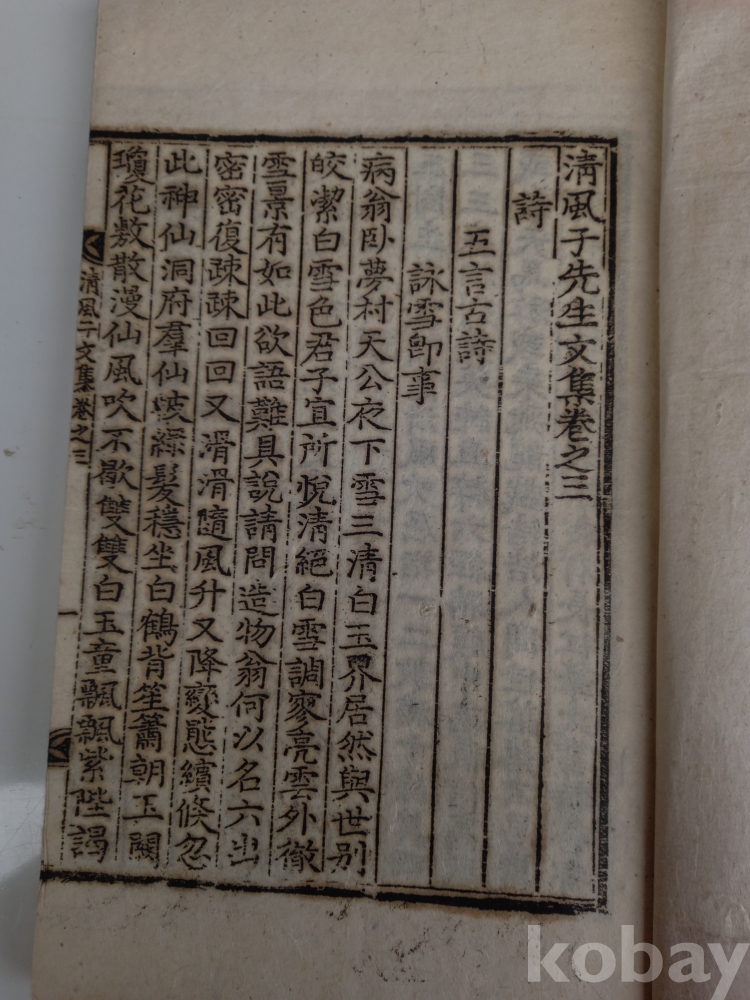 淸風子先生文集卷之三
詩
五言古詩
詠雪卽事
病翁卧夢村天公夜下雪三淸白玉界居然與世别
皎潔白雪色君子宜所悅淸絕白雪調寥亮雲外徹
雪景有如此欲語難具說請問造物翁何以名六出
密密復疎疎回回又滑滑隨風升又降變態繽倏忽
此神仙洞府羣仙被綠髮穩坐白鶴背笙簫朝玉闕
瓊花敷散漫仙風吹不歇雙雙白玉童飄飄紫陛謁
淸風子文集卷之三
一
kobay